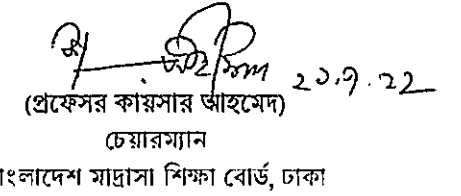 ২১.৭.২২
(প্রফেসর কায়সার আহমেদ)
চেয়ারম্যান
বাংলাদেশ মাদ্রাসা শিক্ষা বোর্ড, ঢাকা